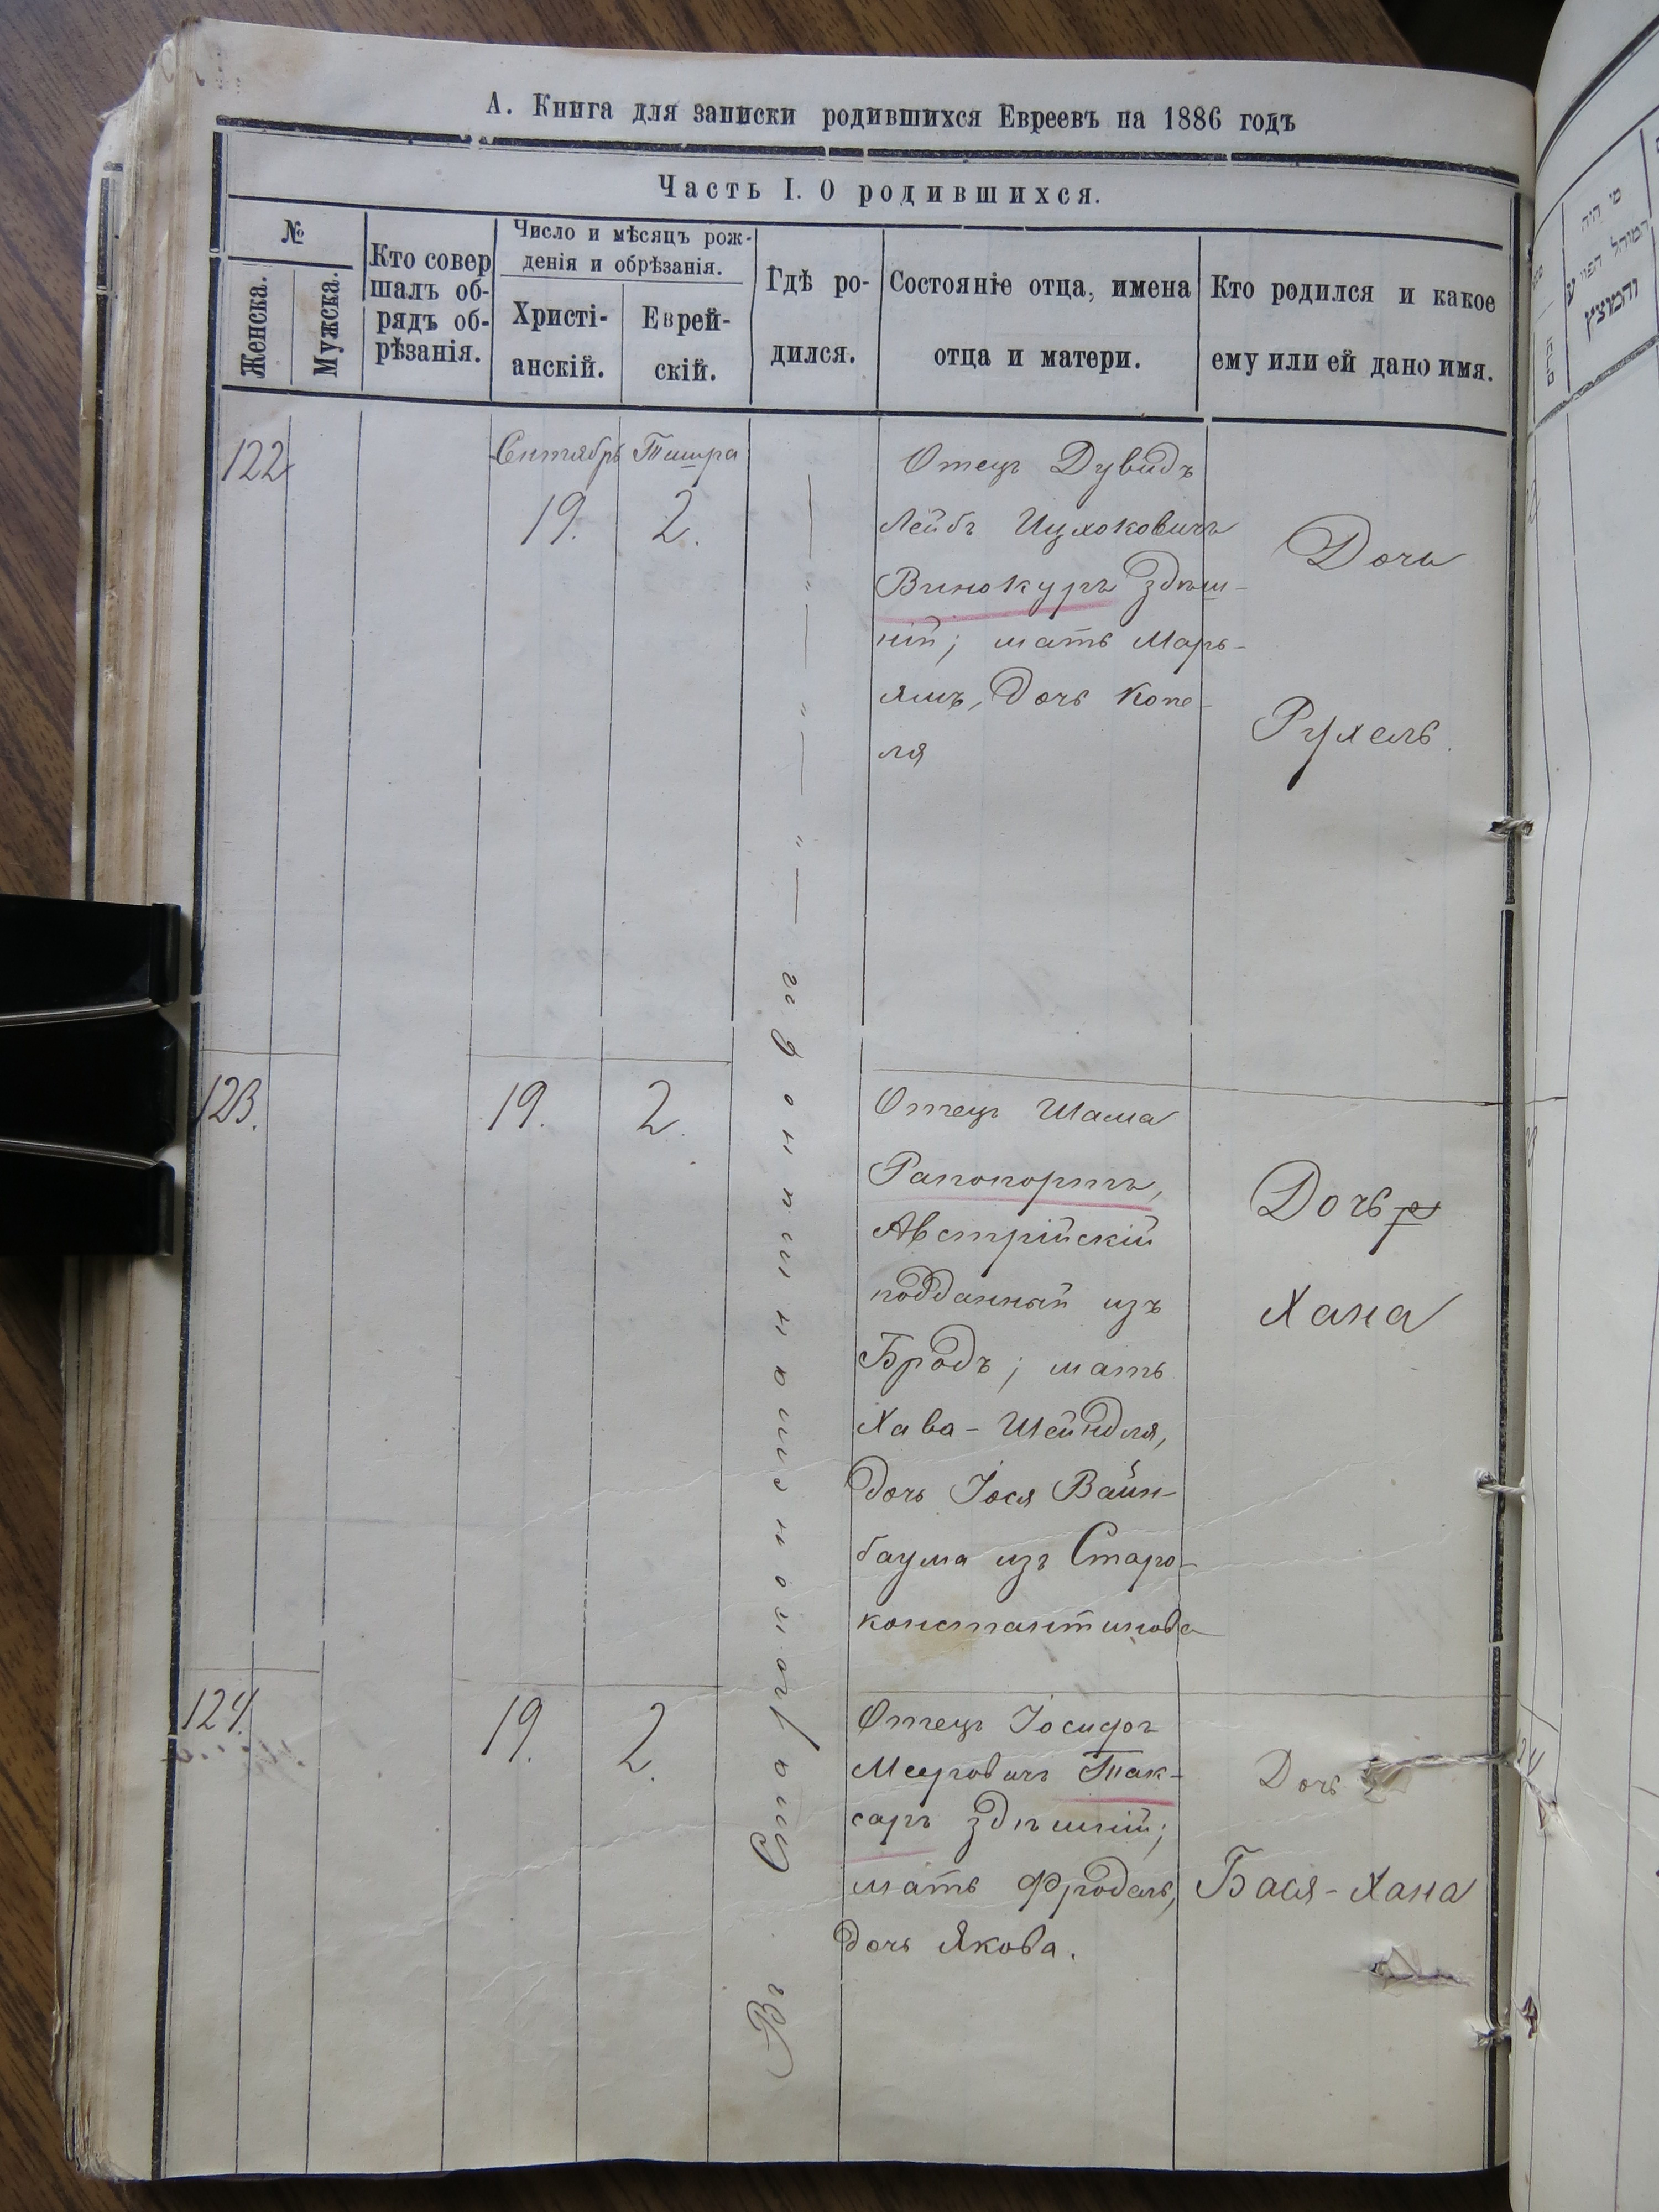 А. Книга для записки родившихся Евреевъ на 1886 годъ
Часть I. О родившихся.
№
Женска.
Мужска.
Кто совер
шалъ об-
рядъ об-
рѣзанія.
Число и мѣсяцъ рож-
денія и обрѣзанія.
Христі-
анскій.
Еврей-
скій.
Гдѣ ро-
дился.
Состояніе отца, имена
отца и матери.
Кто родился и какое
ему или ей дано имя.
122
Сентябрь
19.
Тишра
2.
Отецъ Дувидъ
Лейбъ Ицхоковичъ
Винокуръ здѣш-
ній; мать Марь-
ямъ, дочь Копе-
ля
Дочь
Рухель.
Въ Староконстантиновѣ
123.
19.
2.
Отецъ Шама
Рапопортъ,
Австрійскій
подданный изъ
Бродъ; мать
Хава-Шейндля,
дочь Іося Вайн-
баума изъ Старо-
константинова
Дочь
Хана
124.
19.
2.
Отецъ Іосифъ
Мееровичъ Так-
саръ здѣшній;
мать Фродель,
дочь Якова.
Дочь
Бася-Хана
מי היה
המוהל
והמוצץ